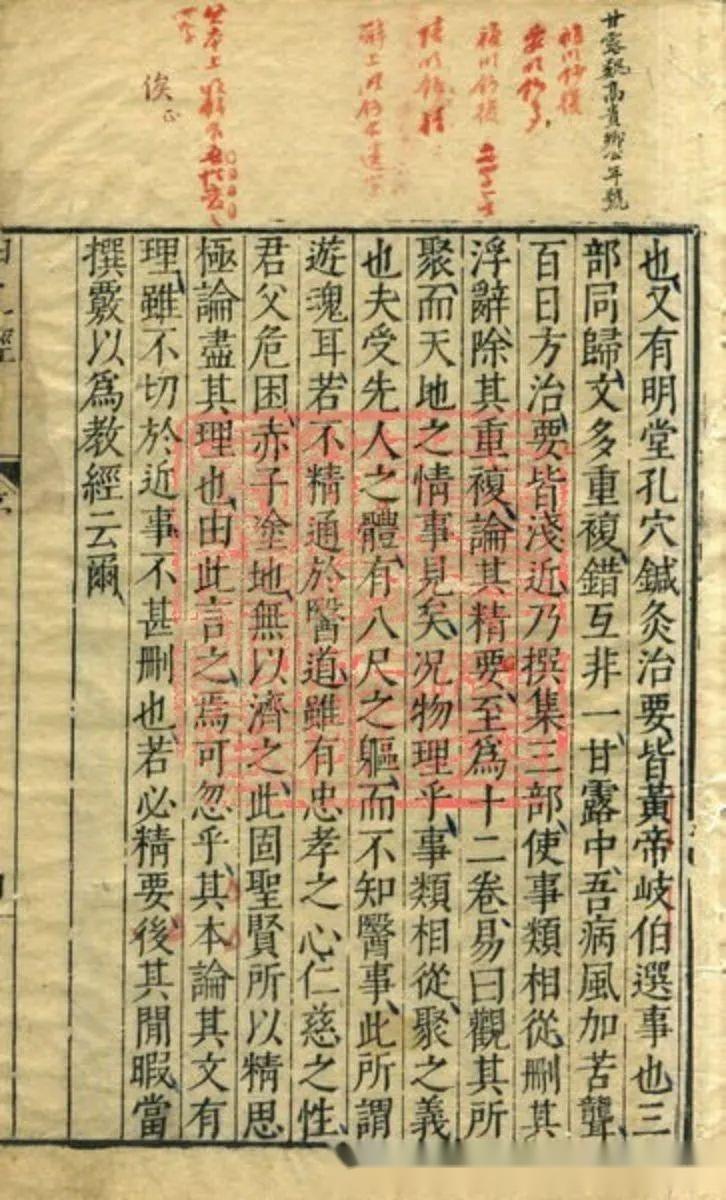 甘露魏高貴鄉公年號
俟正
也又有明堂孔穴鍼灸治要皆黃帝岐伯選事也三
部同歸文多重複錯互非一甘露中吾病風加苦聾
百日方治要皆淺近乃撰集三部使事類相從刪其
浮辭除其重複論其精要至為十二卷易曰觀其所
聚而天地之情事見矣况物理乎事類相從聚之義
也夫受先人之體有八尺之軀而不知醫事此所謂
遊魂耳若不精通於醫道雖有忠孝之心仁慈之性
君父危困赤子塗地無以濟之此固聖賢所以精思
極論盡其理也由此言之焉可忽乎其本論其文有
理雖不切於近事不甚刪也若必精要後其閒暇當
撰覈以為教經云爾